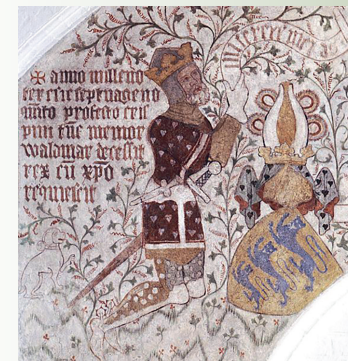 ✠ anno milleno
ter c sex septuageno
quito profesto cris
pini tuc memor
waldmar decessit
rex cū xpo
requiescit
miserere mei deus